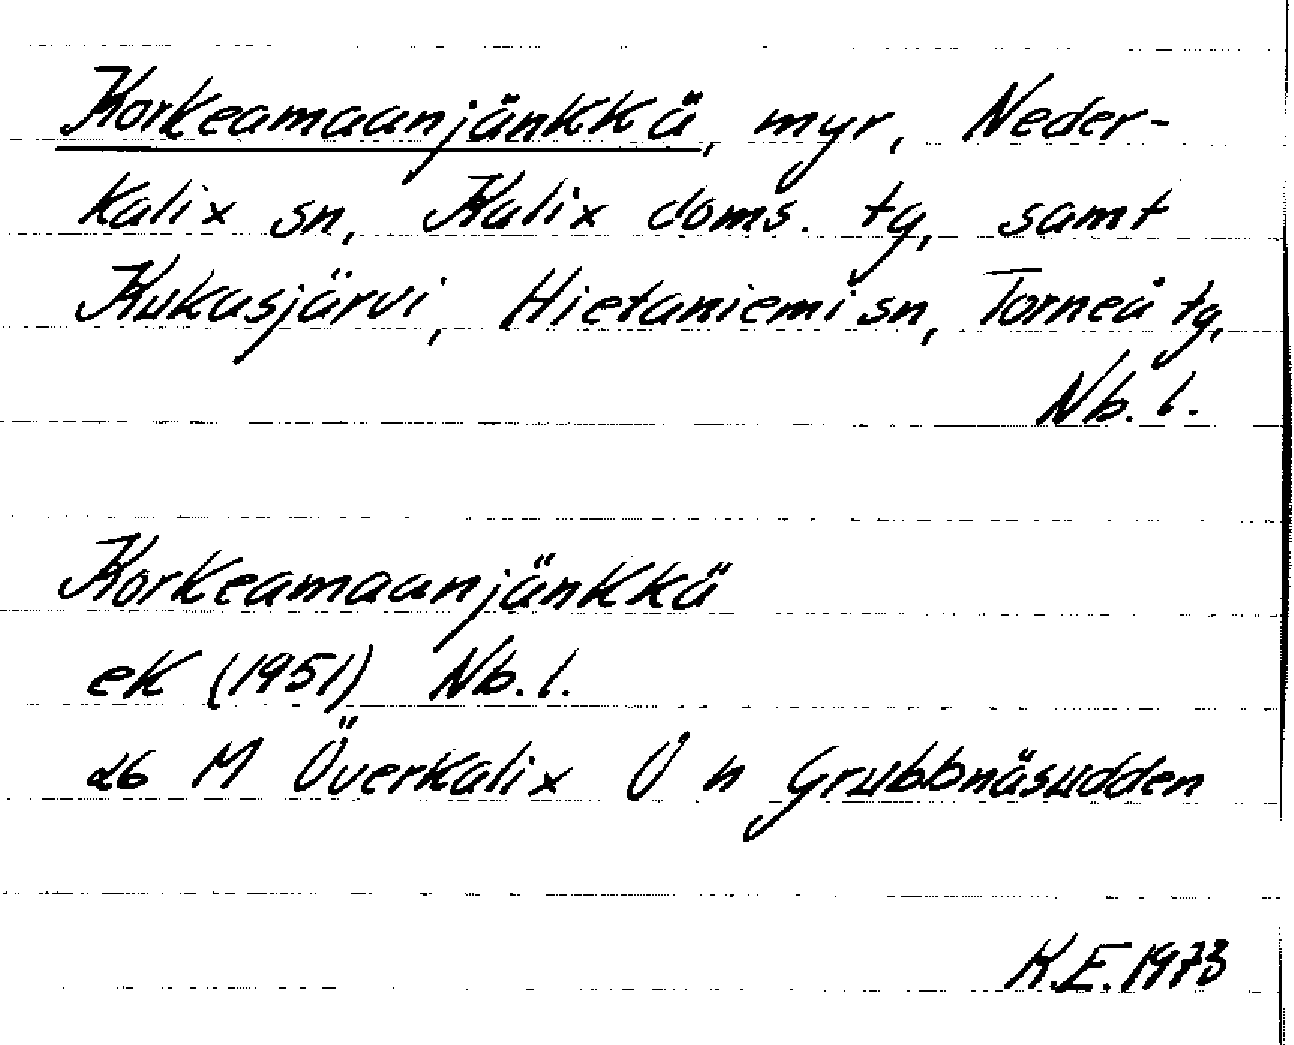 Korkeamaanjänkkä, myr, Neder-
kalix sn, Kalix doms. tg, samt
Kukasjärvi, Hietaniemi sn, Torneå tg,
Nb. l.
Korkeamaanjänkkä
ek (1951) Nb. l.
26 M Överkalix Ö n Grubbnäsudden
K.E. 1973